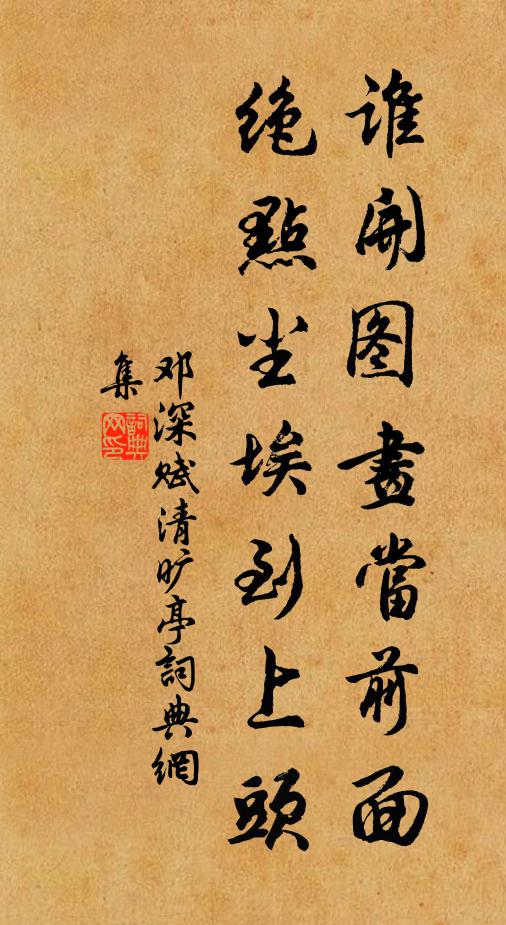 谁開图畫當前面
绝點尘埃到上頭
邓深赋清旷亭詞典網
集
詞典网印